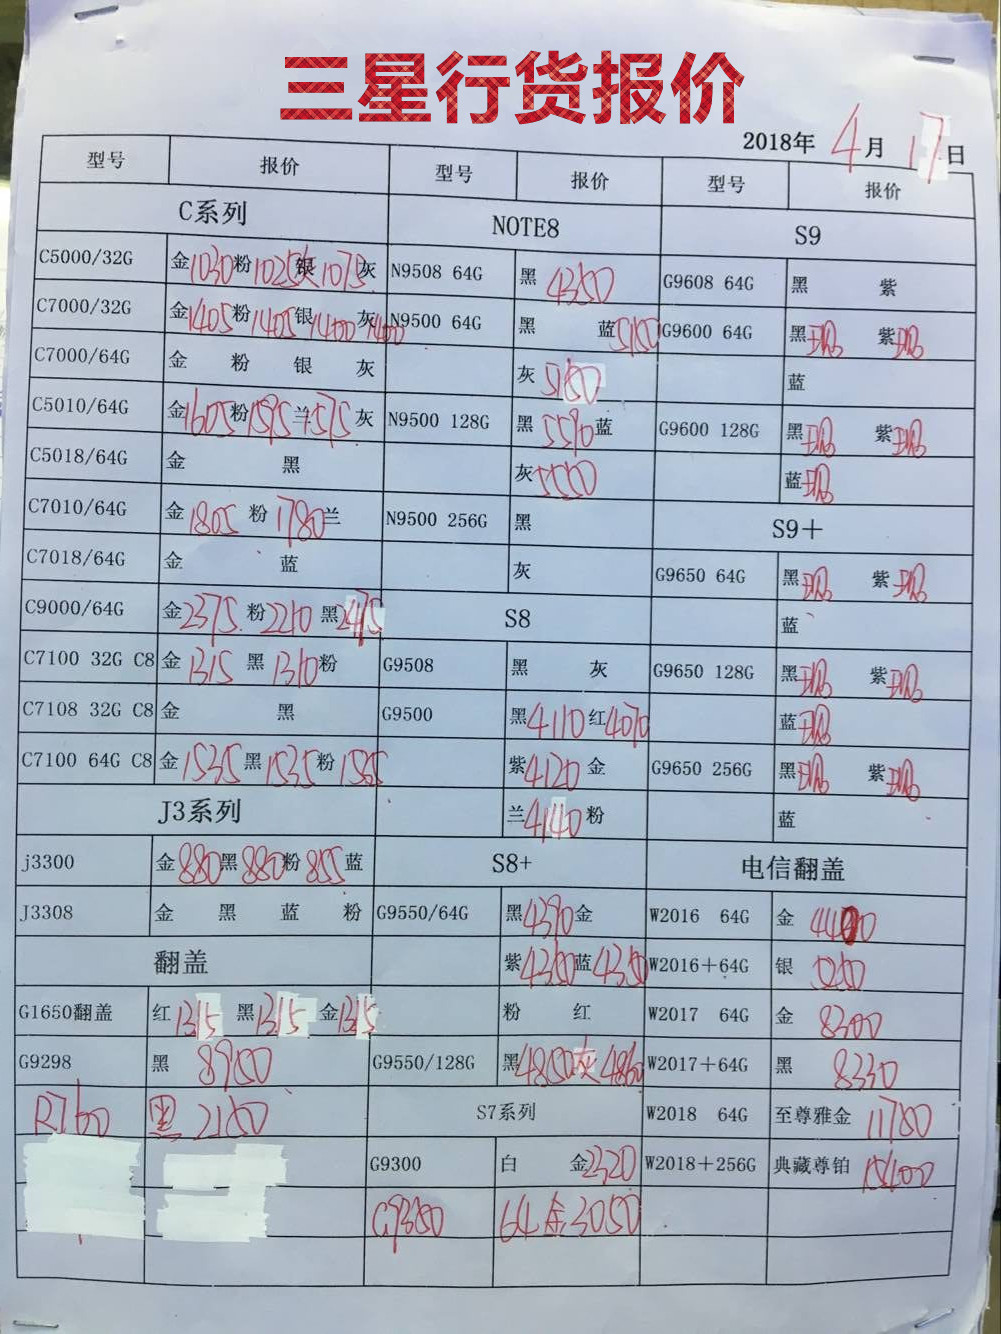 三星行货报价
2018年 4月 17日
型号 报价 型号 报价 型号 报价
C系列 NOTE8 S9
C5000/32G 金1030粉1025银1075灰 N9508 64G 黑 4350 G9608 64G 黑 紫
C7000/32G 金1405粉1405银1400灰1400 N9500 64G 黑 蓝5150 G9600 64G 黑 紫
C7000/64G 金 粉 银 灰 灰 5150 蓝
C5010/64G 金1605粉1595兰1575灰 N9500 128G 黑 5590蓝 G9600 128G 黑 紫
C5018/64G 金 黑 灰5550 蓝
C7010/64G 金1805 粉1780兰 N9500 256G 黑 S9+
C7018/64G 金 蓝 灰 G9650 64G 黑 紫
C9000/64G 金2375 粉2210 黑2475 S8 蓝
C7100 32G C8 金1315 黑1310粉 G9508 黑 灰 G9650 128G 黑 紫
C7108 32G C8 金 黑 G9500 黑4110红4070 蓝
C7100 64G C8 金1535黑1535粉1535 紫4120 金 G9650 256G 黑 紫
J3系列 兰4140 粉 蓝
j3300 金880黑880粉855蓝 S8+ 电信翻盖
J3308 金 黑 蓝 粉 G9550/64G 黑4390金 W2016 64G 金 4400
翻盖 紫4350蓝4350 W2016+64G 银 5250
G1650翻盖 红1315 黑1315 金1315 粉 红 W2017 64G 金 8300
G9298 黑 8950 G9550/128G 黑4850灰4860 W2017+64G 黑 8330
R760 黑 2150 S7系列 W2018 64G 至尊雅金 11780
G9300 白 金2320 W2018+256G 典藏尊铂 15400
G9350 64金3050